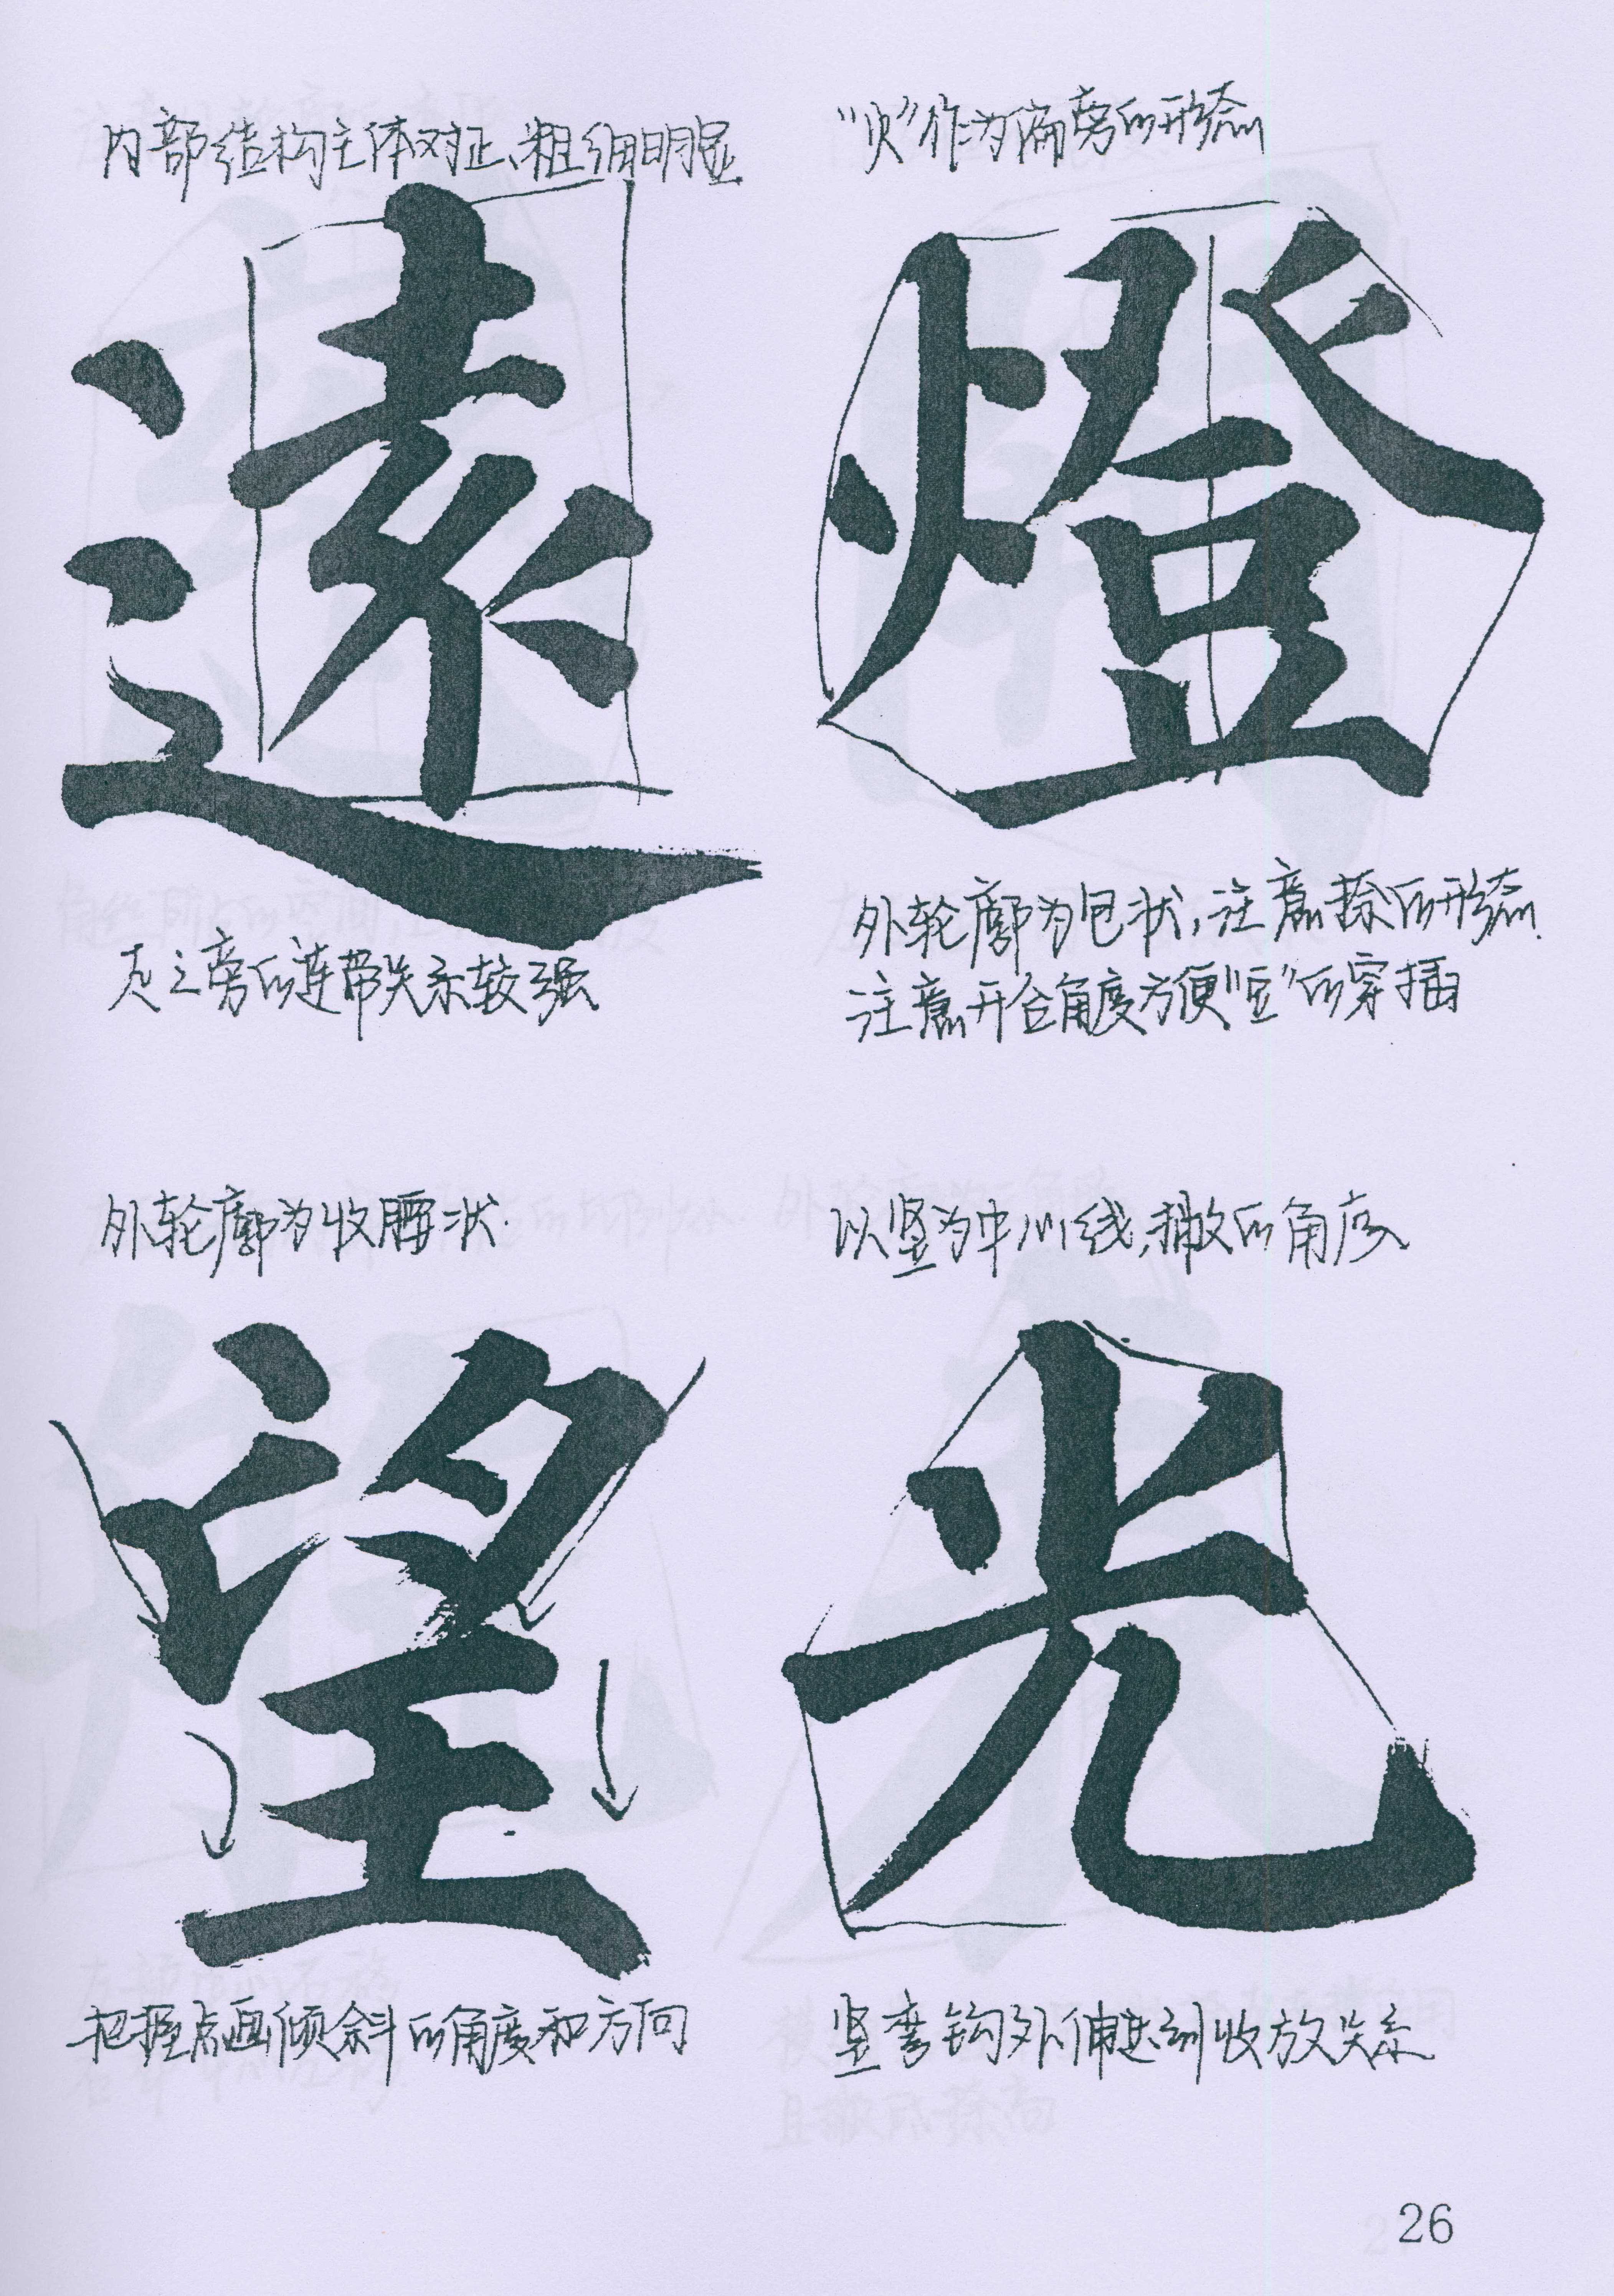 内部结构主体对正、粗细明显
“火”作为偏旁的形态
遠
燈
走之旁的连带关系较强
外轮廓为包状，注意捺的形态.
注意开合角度方便“豆”的穿插
外轮廓为收腰状.
以竖为中心线，撇的角度
望
光
把握点画倾斜的角度和方向
竖弯钩外伸达到收放关系
26